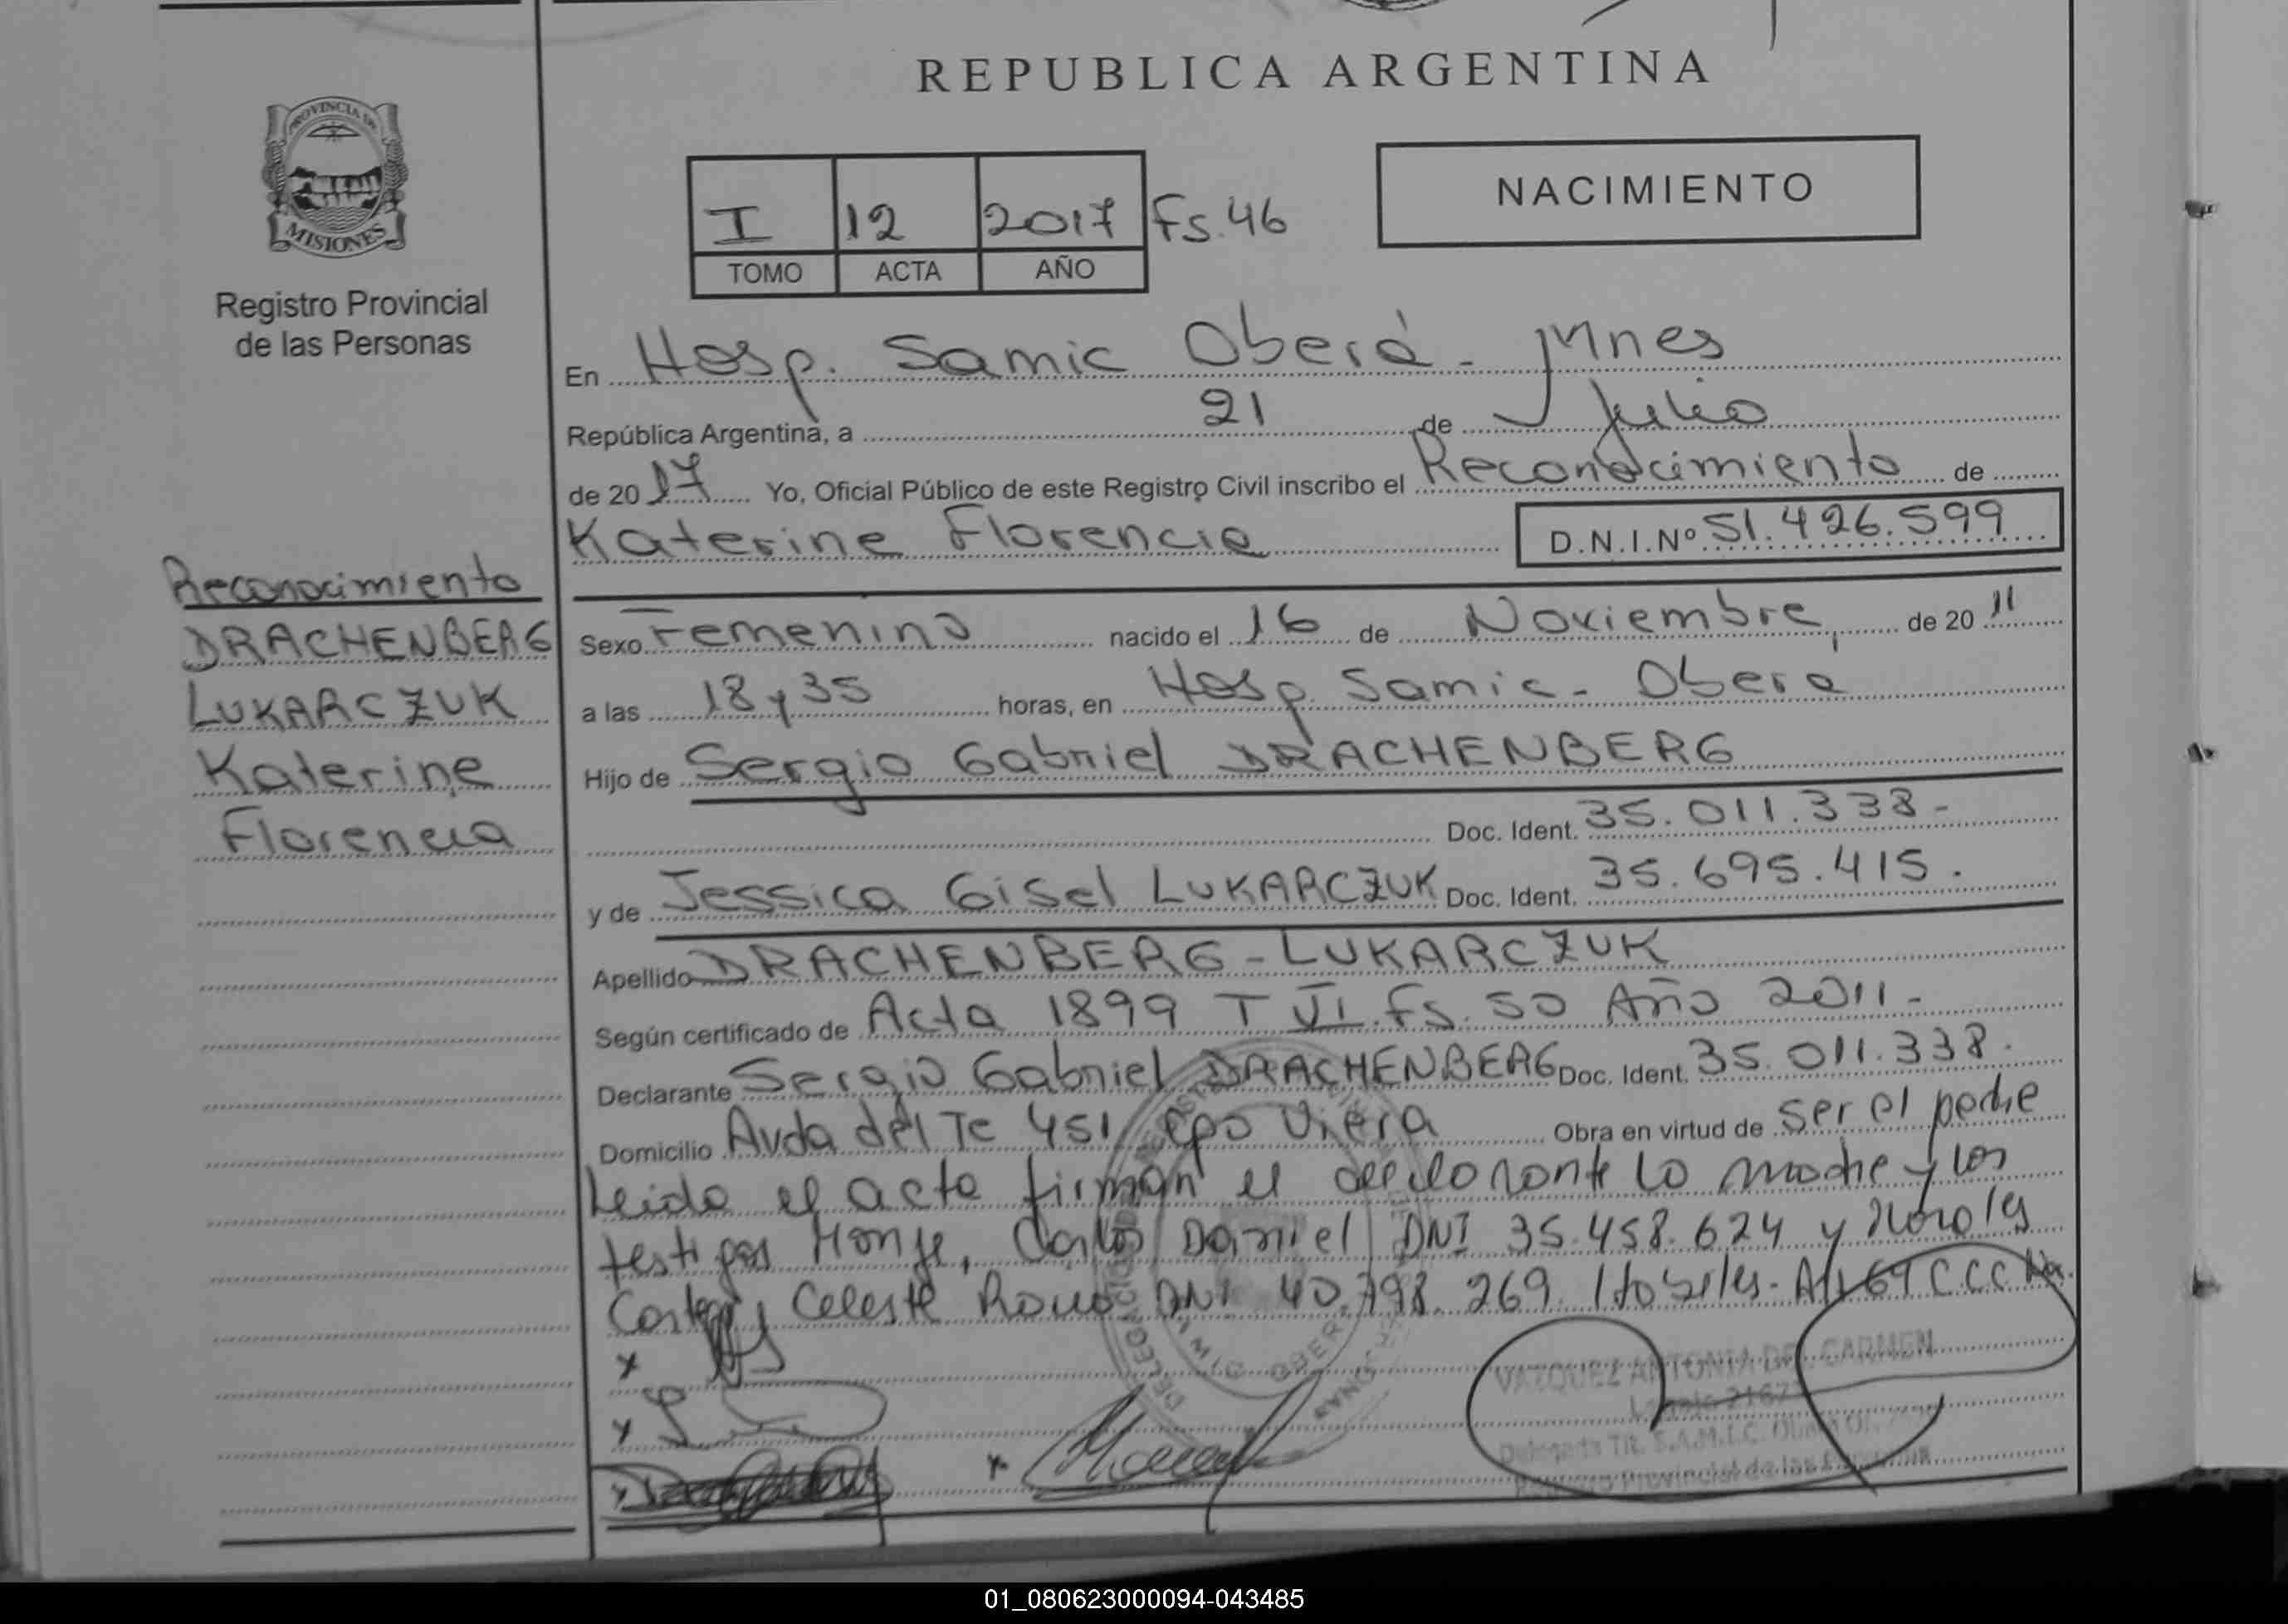 REPUBLICA ARGENTINA
PROVINCIA DE
MISIONES
Registro Provincial
de las Personas
I 12 2017 Fs. 46
TOMO ACTA AÑO
NACIMIENTO
En Hosp. Samic Oberá - Mnes
República Argentina, a 21 de Julio
de 2017 Yo, Oficial Público de este Registro Civil inscribo el Reconocimiento de
Katerine Florencia D.N.I.Nº 51.426.599
Reconocimiento
DRACHENBERG
LUKARCZUK
Katerine
Florencia
Sexo Femenino nacido el 16 de Noviembre, de 2011
a las 18 y 35 horas, en Hosp. Samic - Oberá
Hijo de Sergio Gabriel DRACHENBERG
Doc. Ident. 35.011.338-
y de Jessica Gisel LUKARCZUK Doc. Ident. 35.695.415.
Apellido DRACHENBERG - LUKARCZUK
Según certificado de Acta 1899 T VI Fs. 50 Año 2011-
Declarante Sergio Gabriel DRACHENBERG Doc. Ident. 35.011.338.
Domicilio Avda del Te 451 Cpo Viera Obra en virtud de ser el padre
Leida el acta firman el declarante la madre y los
testigos Monje, Carlos Daniel DNI 35.458.624 y Morales
Celeste Rocio DNI 40.798.269 Hobiles-
VAZQUEZ ANTONIA DEL CARMEN
Registro Provincial de las Personas
01_080623000094-043485